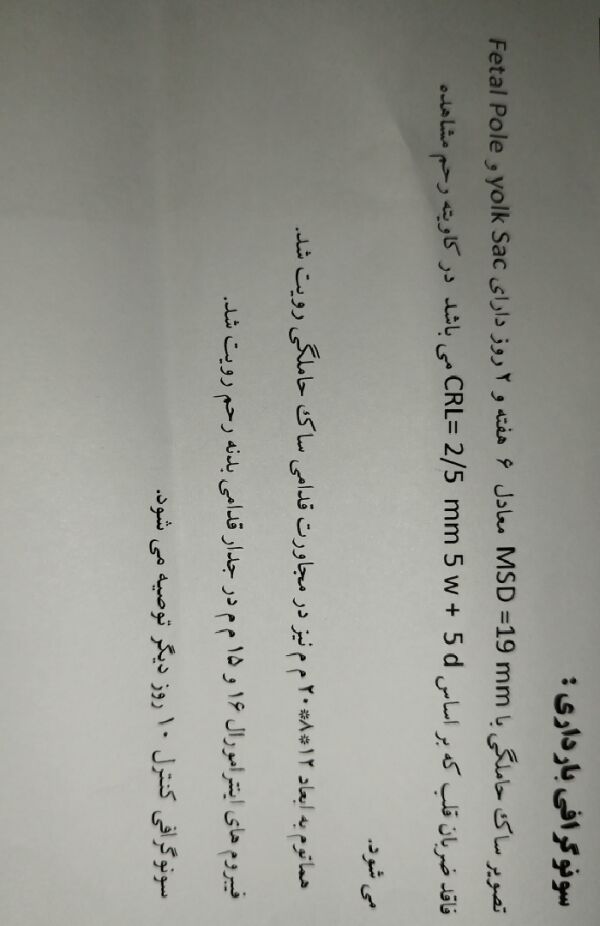 سونوگرافی بارداری :
تصویر ساک حاملگی با MSD =19 mm معادل ۶ هفته و ۲ روز دارای yolk Sac و Fetal Pole
فاقد ضربان قلب که بر اساس CRL= 2/5 mm 5 w + 5 d می باشد در کاویته رحم مشاهده
می شود.
هماتوم به ابعاد ۱۲*۸*۲۰ م م نیز در مجاورت قدامی ساک حاملگی رویت شد.
فیبروم های اینترامورال ۱۶ و ۱۵ م م در جدار قدامی بدنه رحم رویت شد.
سونوگرافی کنترل ۱۰ روز دیگر توصیه می شود.